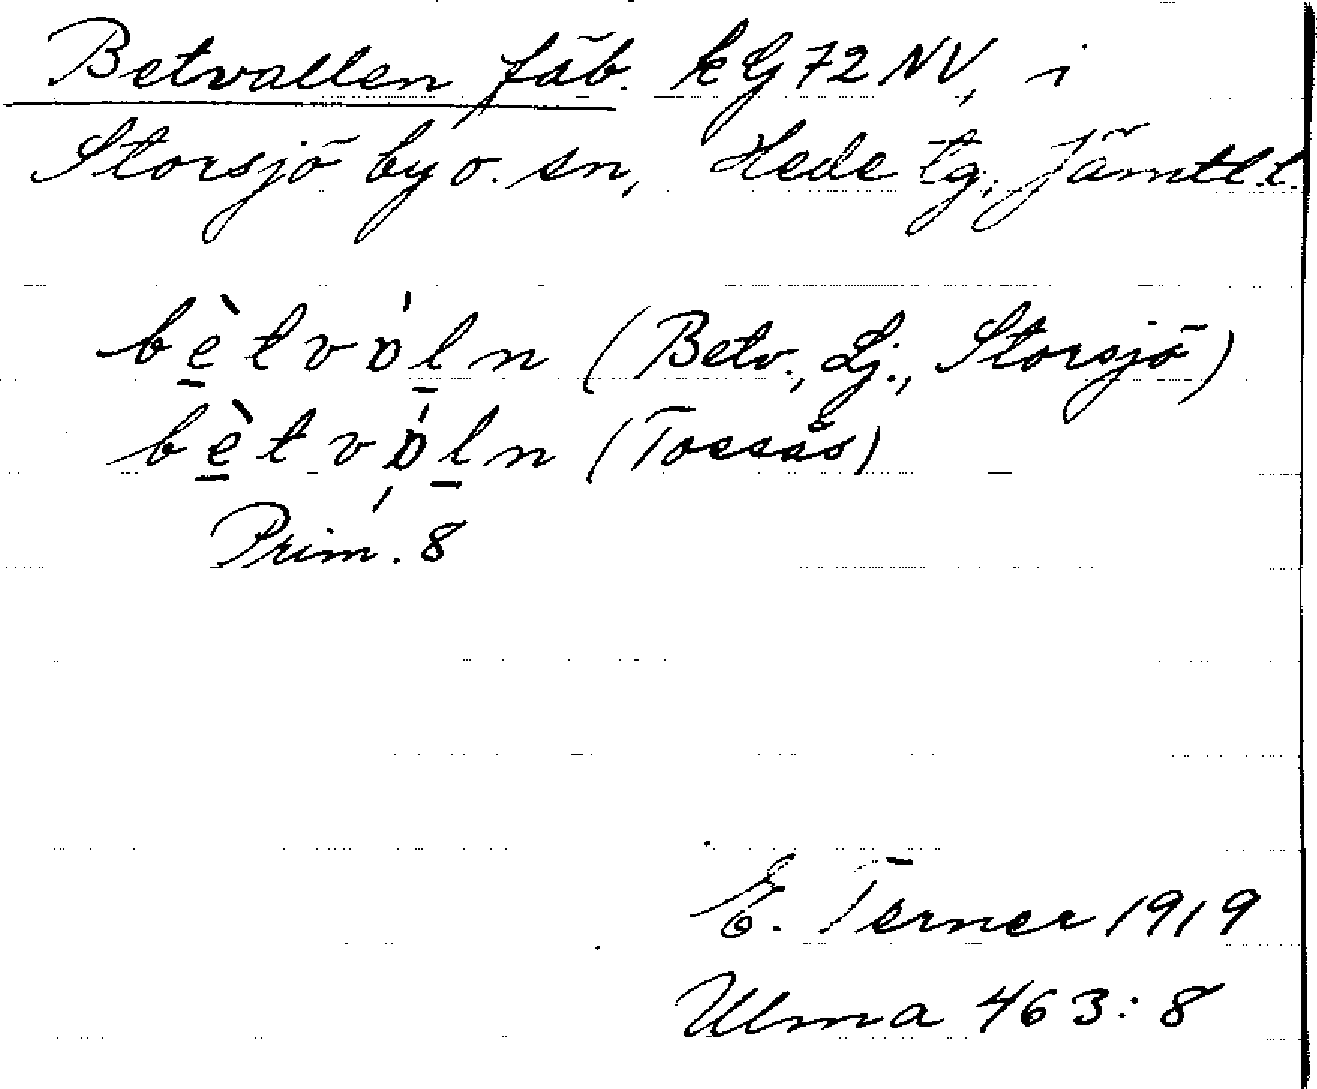 Betvallen fäb. kG72NV, i
Storsjö by o. sn, Hede tg, Jämtl.l.
bètvòln (Betv., Lj., Storsjö)
bètvòln (Tossås)
Prim. 8
E. Terner 1919
Ulma 463:8